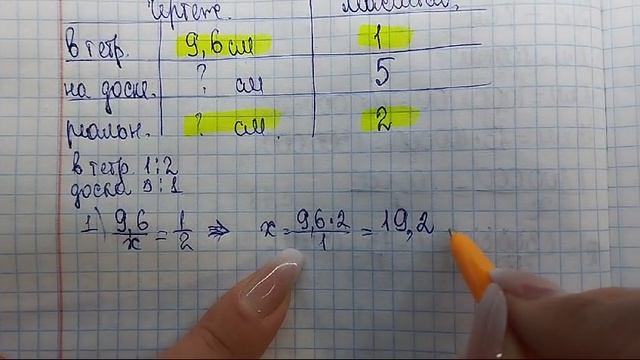 Чертеже. Масштаб.
в тетр. 9,6 см 1
на доске. ? см 5
реальн. ? см. 2
в тетр 1:2
доска 5:1
1) 9,6/x = 1/2 ⇒ x = 9,6·2/1 = 19,2